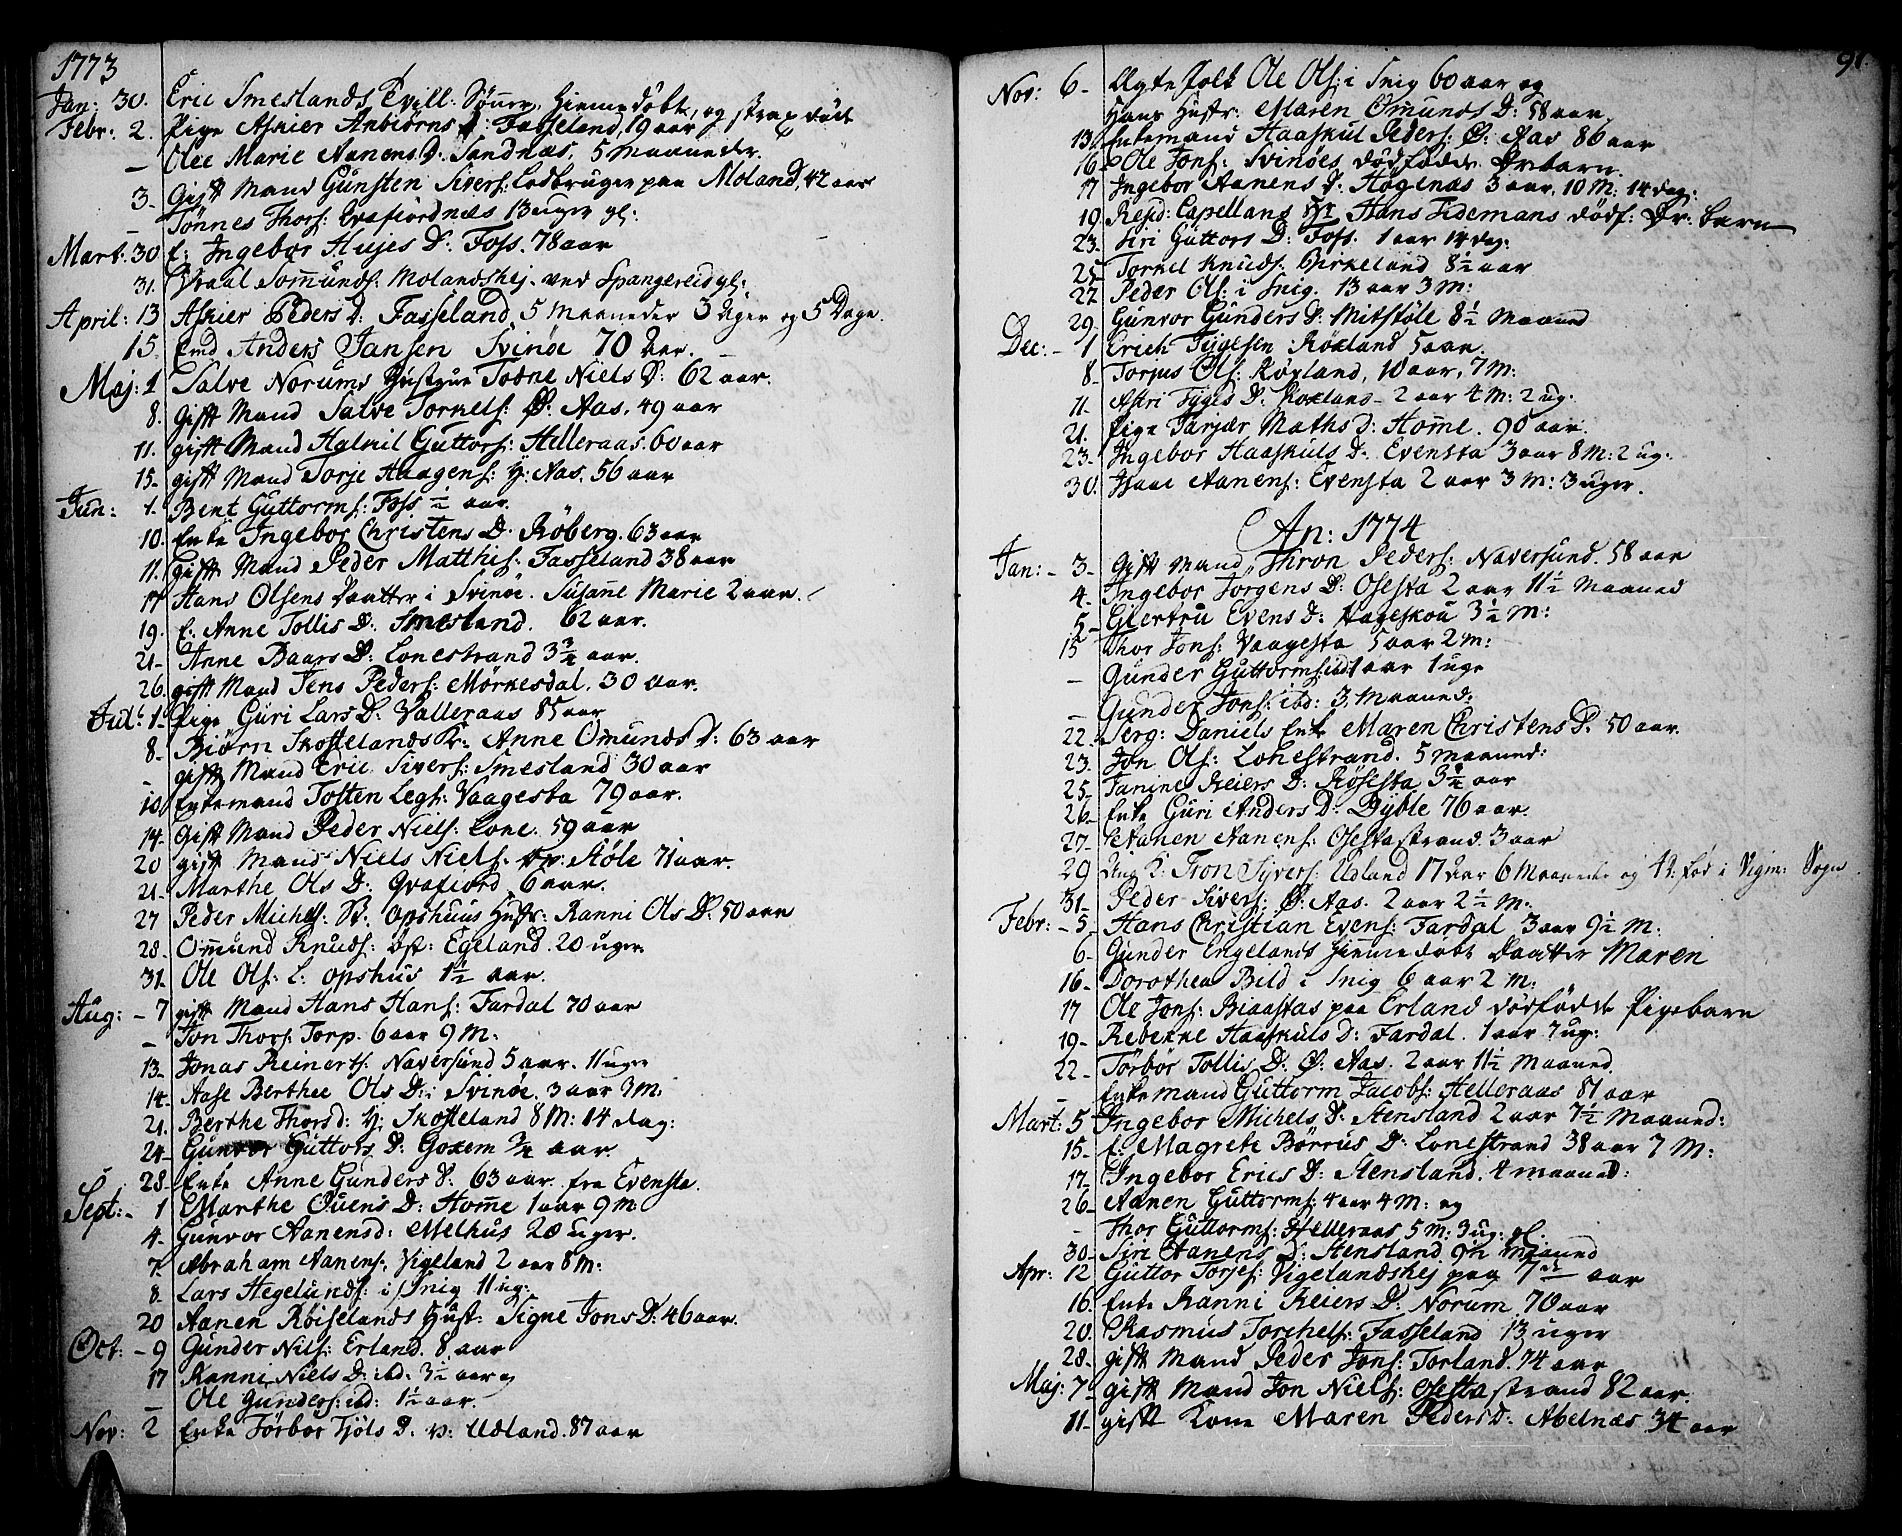 1773
Jan: 30. Eric Smeslands Tvill: Sønner, Hiemmedøbte, og strax døde
Febr: 2. Pige Askier Anbiørns D: Fasseland, 19 aar
– Olee Marie Aanens D: Sandnæs, 5 Maaneder.
3– Gift Mand Gunsten Sivers: Lodbruger paa Moland, 42 aar
– Tønnes Thors: Qvafiordnæs 13 uger gl:
Mart: 30 E: Ingebor Hujes D: Foss. 78 aar
31. Vraal Tommunds: Molandshej. ved Spangereid gl:
April: 13 Askier Peders D: Fasseland 5 Maaneder 3 Uger og 5 Dage.
15. Emd Anders Jansen Svinøe 70 Aar.
Maj: 1 Salve Norums Hustrue Todne Niels D: 62 aar.
8. gift Mand Salve Torkels: Ø: Aas, 49 aar
11. gift Mand Halkil Guttors: Helleraas. 60 aar
15. gift Mand Torje Haagens: Y: Aas. 56 aar
Jun: 1. Bent Guttorms: Foss ½ aar.
10. Enke Ingebor Christens D. Røberg. 63 aar
11. gift Mand Peder Matthis: Fasseland 38 aar
17 Hans Olsens Daatter i Svinøe. Susanne Marie 2 aar.
19. E. Anne Tollis D: Smesland. 62 aar.
21– Anne Baars D: Lonestrand 3¾ aar.
26. gift Mand Jens Peders: Mörkesdal. 30 aar.
Jul: 1– Pige Guri Lars D: Valleraas 85 aar
8– Biørn Skoftelands K: Anne Omunds D: 63 aar
– gift Mand Eric Sivers: Smesland 30 aar
10 Enkemand Tosten Legs: Vaagesta 79 aar.
14. Gift Mand Peder Niels: Lone. 59 aar
20 gift Mand Niels Niels: Støle 71 aar.
21. Marthe Ols D: Qvafiord 6 aar.
27 Peder Michels: St. Opshuus Hustr: Ranni Ols D: 50 aar
28. Ommund Knuds: Øst: Egeland. 20 uger
31. Ole Ols: L: Opshus 1½ aar.
Aug: – 7 gift Mand Hans Hans: Fardal 70 aar
– Jon Thors: Torp. 6 aar 9 M:
13. Jonas Reinerts: Naversund 5 aar. 11 uger
14. Aase Berthee Ols D: i Svinøe. 3 aar 3 M:
21. Berthe Thors d: Y: Skofteland 8 M: 14 dag:
24– Gunvor Guttors D: Goxem ¾ aar.
28. Enke Anne Gunders D. 63 aar fra Evensta.
Sept: – 1 Marthe Ouens D: Homme 1 aar 9 M:
4– Gunvor Aanens d: Melhus 20 uger.
7. Abraham Aanens: Vigeland 2 aar 8 M:
8– Lars Hegelunds: i Snig 11 ug:
20 Aanen Røiselands Hust: Signe Jons D: 46 aar.
Oct: – 9 Gunder Nils: Erland. 8 aar
17 Ranni Niels D: ibd: 3½ aar og
– Ole Gunders: ibd: 1½ aar.
Nov: 2 Enke Torbor Tjöls D. v: Udland. 87 aar
91.
Nov: 6– Ægtefolk Ole Ols: i Snig 60 aar og
Hans Hustr: Maren Omunds D: 58 aar.
13. Enkemand Haaskul Peders: Ø: Aas 80 aar
16– Ole Jons: Svinøes dødfødde Drbarn.
17 Ingebor Aanens D: Høgenæs 3 aar. 10 M: 14 dag:
19 Resid: Capellans Hr Hans Tidemans dødf: Dr: barn
23. Siri Guttors D: Foss. 1 aar 14 dag:
25 Torkel Knuds: Birkeland 8½ aar
27 Peder Ols: i Snig. 13 aar 3 M:
29. Gunvor Gunders D: Mitstøle 8½ Maaned
Dec: – 1 Erich Tygesen Røxland 5 aar.
8– Torjus Ols: Røxland, 10 aar, 7 M:
11– Astri Tyges D: Roxland – 2 aar 4 M: 2 ug.
21. Pige Tarjær Maths D: Homme. 90 aar.
23– Ingebor Haaskuls D: Evensta 3 aar 8 M: 2 ug:
30. Isaac Aanens: Evensta 2 aar 3 M: 3 uger.
An: 1774
Jan: – 3– Gift Mand Thron Peders: Naversund. 58 aar
4– Ingebor Jorgens D: Osesta 2 aar 11½ Maaned
5– Giertru Evens D: Hageskou 3½ M:
15 Thor Jons: Vaagesta 5 aar 2 M:
– Gunder Guttorms: ibd 1 aar 1 uge
– Gunder Jons: ibd: 3 Maaned:
22. Serg: Daniels Enke Maren Christens D. 50 aar.
23. Jon Ols: Lonestrand. 5 Maaned:
25– Tanine Reiers D: Røsesta 3¾ aar
26– Enke Guri Anders D: Dyble 76 aar.
27– Aanen Aanens: Osestastrand. 3 aar
29 Ung K. Tron Syvers: Udland 17 Aar 6 Maaneder og 11: fød i Vigm: Sogn
31– Peder Sivers: Ø: Aas. 2 aar 2½ M:
Febr: – 5– Hans Christian Evens: Fardal 3 aar 9½ M:
6– Gunder Engelands Hiemmedøbt Daatter Maren
16– Dorothea Bild i Snig 6 aar 2 M:
17 Ole Jons: Biaastas paa Erland dødfødde Pigebarn
19– Rebekke Haaskuls D: Fardal. 1 aar 7 ug:
22– Törbör Tollis D. Ø: Aas. 2 aar 11½ Maaned.
– Enkemand Guttorm Jacobs: Helleraas 81 aar
Mart: 5 Ingebor Michels D: Stensland 2 aar 7½ Maaned:
15– E: Magrete Börrus D: Lonestrand 38 aar 7 M:
17– Ingebor Erics D: Stensland. 4 maaned:
26– Aanen Guttorms: 4 aar 4 M: og
– Thor Guttorms: Helleraas 5 M: 3 ug: gl.
30– Siri Aanens D: Stensland 9½ Maaned
Apr: 12 Guttor Torjes: Vigelandshej paa 7de aar
16. Enke Ranni Reiers D: Norum 70 aar
20. Rasmus Torchels: Fasseland 13 uger
28– gift Mand Peder Jons: Torland. 74 aar
Maj: 7– gift Mand Jon Niels: Osestastrand 82 aar.
11– gift Kone Maren Peders D: Abelnæs 34 aar